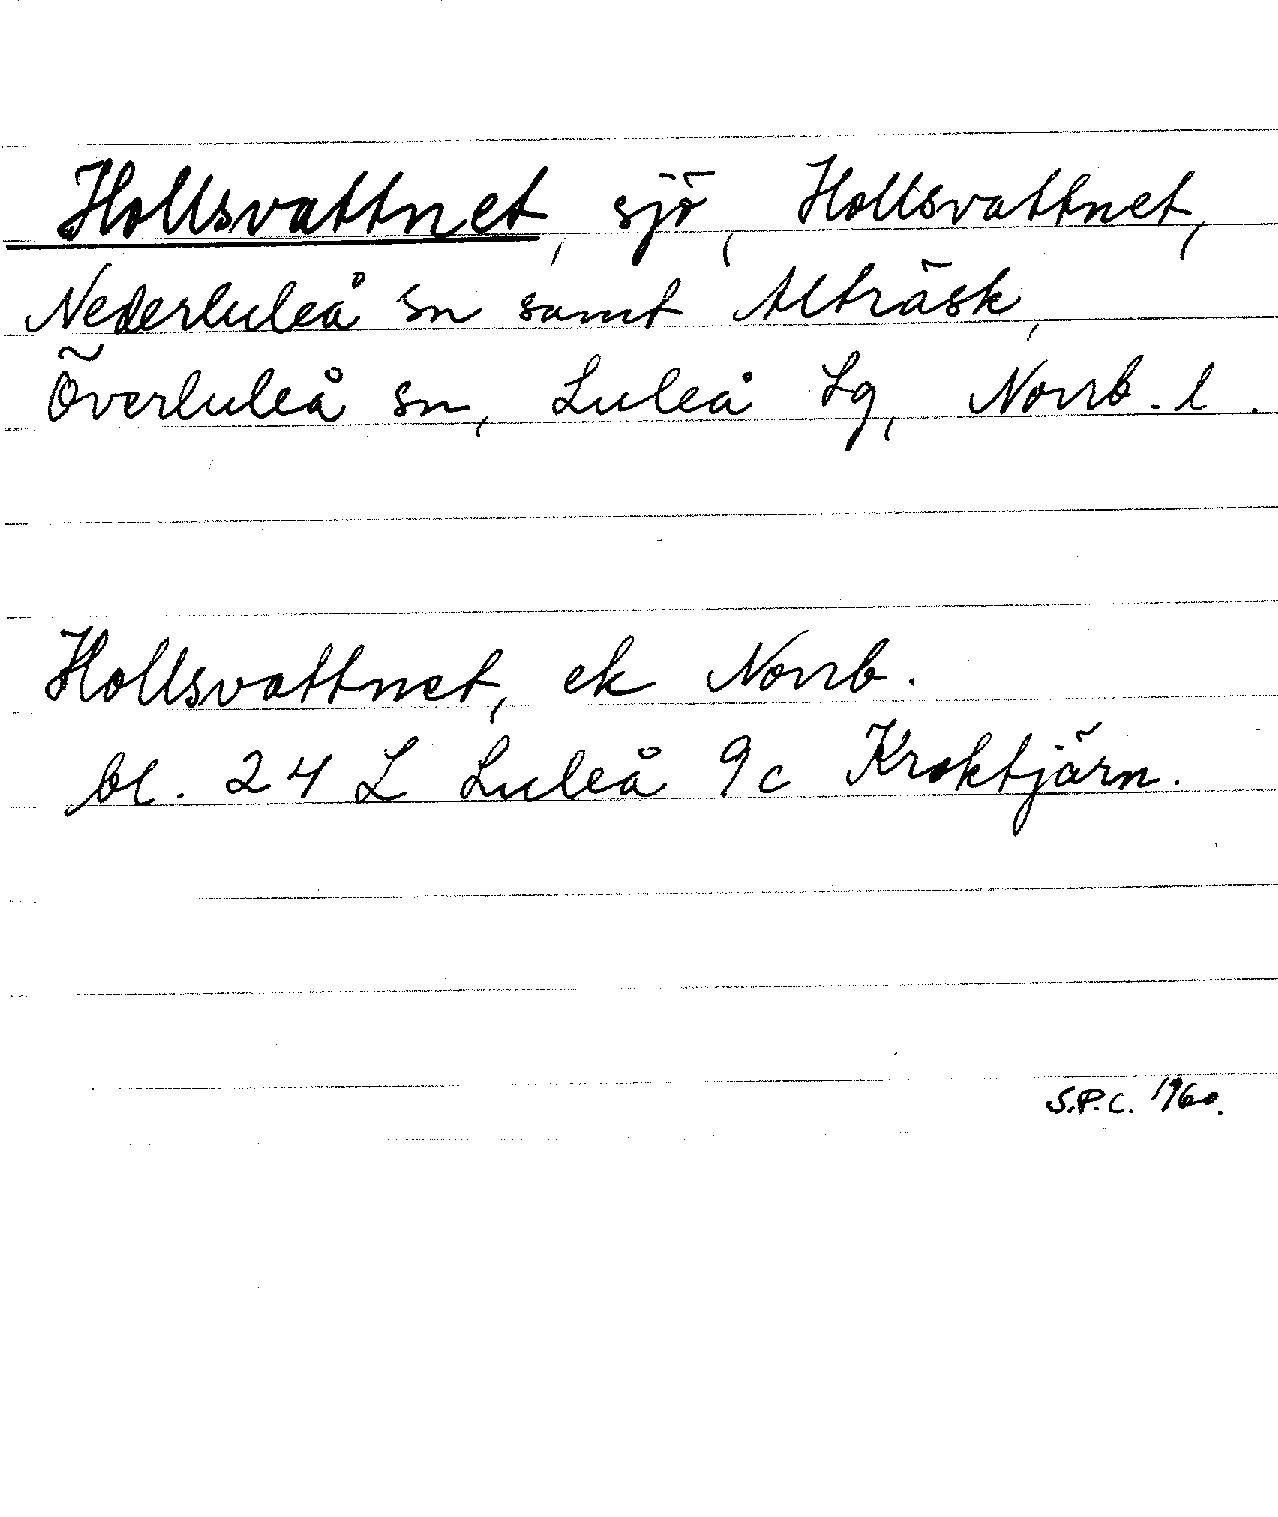 Hollsvattnet, sjö, Hollsvattnet,
Nederluleå sn samt Alträsk,
Överluleå sn, Luleå Lg, Norrb. l.
Hollsvattnet, ek Norrb.
bl. 24 L Luleå 9c Kroktjärn.
S.P.C. 1960.